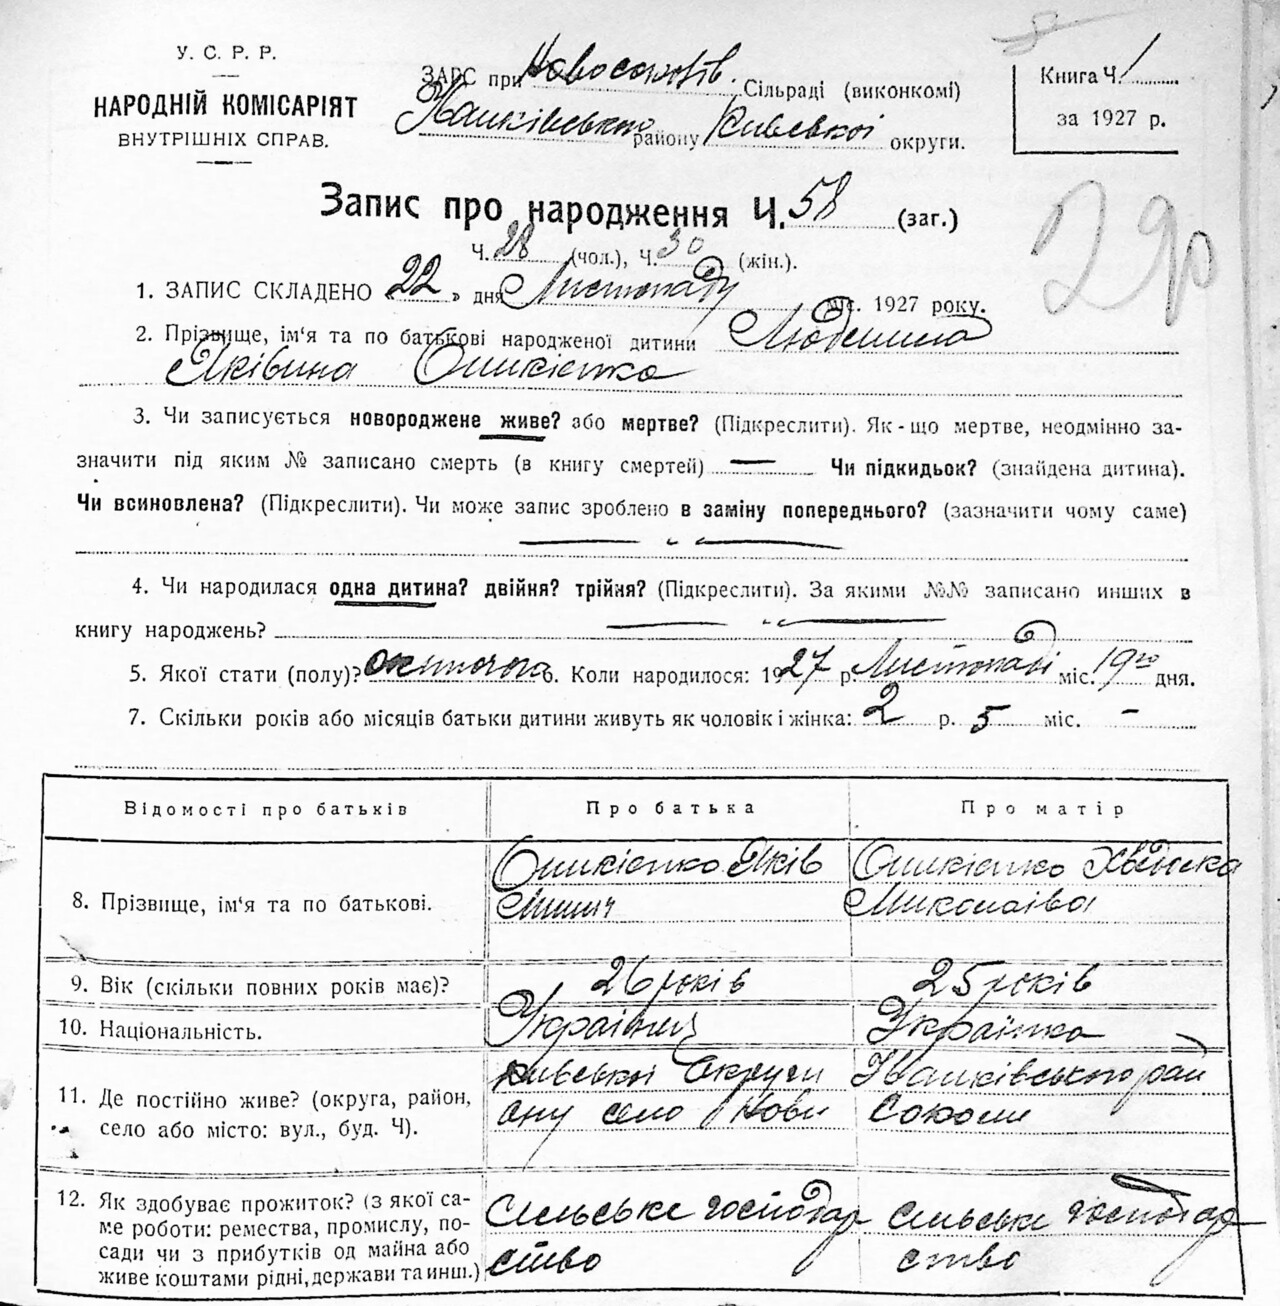 У. С. Р. Р.
НАРОДНІЙ КОМІСАРІЯТ
ВНУТРІШНІХ СПРАВ.
ЗАГС при Сільраді (виконкомі)
району Київської округи.
Книга Ч. 1
за 1927 р.
290
Запис про народження Ч. 58 (заг.)
Ч. 28 (чол.), Ч. 30 (жін.).
1. ЗАПИС СКЛАДЕНО „22" дня Листопаду міс. 1927 року.
2. Прізвище, ім'я та по батькові народженої дитини
Яківна Оникієнко
3. Чи записується новороджене живе? або мертве? (Підкреслити). Як-що мертве, неодмінно за-
значити під яким № записано смерть (в книгу смертей) — Чи підкидьок? (знайдена дитина).
Чи всиновлена? (Підкреслити). Чи може запис зроблено в заміну попереднього? (зазначити чому саме)
— „ —
4. Чи народилася одна дитина? двійня? трійня? (Підкреслити). За якими №№ записано инших в
книгу народжень? — „ —
5. Якої стати (полу)? 6. Коли народилося: 1927 р. Листопаді міс. 19го дня.
7. Скільки років або місяців батьки дитини живуть як чоловік і жінка: 2 р. 5 міс. -
Відомості про батьків Про батька Про матір
8. Прізвище, ім'я та по батькові. Оникієнко Яків Оникієнко
Миколаївна
9. Вік (скільки повних років має)? 26 років 25 років
10. Національність. Українец Українка
11. Де постійно живе? (округа, район, Київської Округи Іванківського рай
село або місто: вул., буд. Ч). ону село Нови Соколи
12. Як здобуває прожиток? (з якої са-
ме роботи: ремества, промислу, по- Сільське господар сільське господар
сади чи з прибутків од майна або
живе коштами рідні, держави та инш.) ство ство